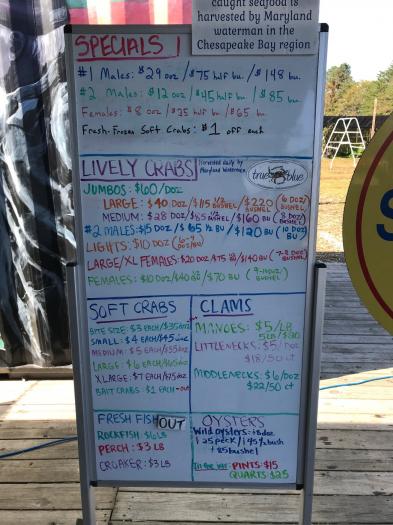 caught seafood is
harvested by Maryland
waterman in the
Chesapeake Bay region
SPECIALS!
#1 Males: $29 doz / $75 half bu. / $148 bu.
#2 Males: $12 doz / $45 half bu / $85 bu.
Females: $8 doz / $35 half bu / $65 bu.
Fresh-Frozen Soft Crabs: $1 off each
LIVELY CRABS
Harvested daily by
Maryland Watermen
true blue
JUMBOS: $60/DOZ
LARGE: $40 DOZ/$115 1/2 BUSHEL/$220 BUSHEL (6 DOZ/BUSHEL)
MEDIUM: $28 DOZ/$85 1/2 BUSHEL/$160 BU (8 DOZ/BUSHEL)
#2 MALES: $15 DOZ/$65 1/2 BU/$120 BU (10 DOZ/BU)
LIGHTS: $10 DOZ
LARGE/XL FEMALES: $20 DOZ/$75 1/2 BU/$140 BU (7-8 DOZ/BUSHEL)
FEMALES: $10 DOZ/$40 1/2 BU/$70 BU (9-10 DOZ/BUSHEL)
SOFT CRABS
BITE SIZE: $3 EACH/$35 DOZ
SMALL: $4 EACH/$45 DOZ
MEDIUM: $5 EACH/$55 DOZ
LARGE: $6 EACH/$65 DOZ
XLARGE: $7 EACH/$75 DOZ
BAIT CRABS: $1 EACH - OUT
CLAMS
MANOES: $5/LB
5 LB/$20
LITTLENECKS: $5/DOZ
$18/50 CT
MIDDLENECKS: $6/DOZ
$22/50 CT
FRESH FISH OUT
ROCKFISH: $6 LB
PERCH: $3 LB
CROAKER: $3 LB
OYSTERS
Wild oysters: $8 doz
$25 peck / $45 1/2 bush
$85 bushel
In the jar: PINTS: $15
QUARTS: $25